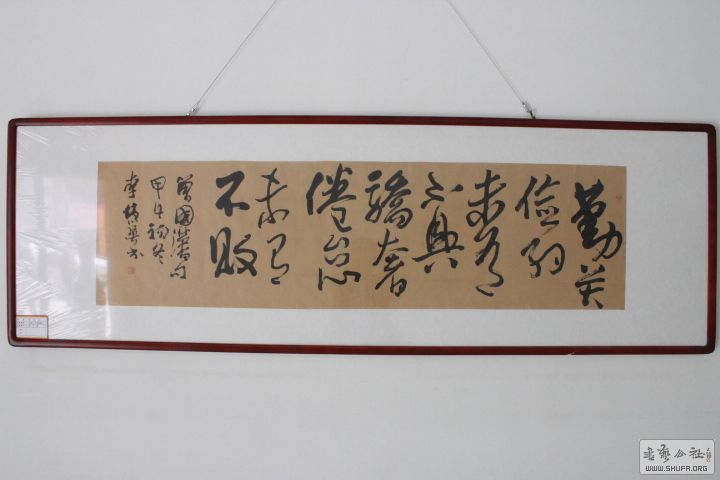 勤苦
儉約
未有
不興
驕奢
倦怠
未有
不敗
曾國藩句
甲午初冬
李書
书藝公社
WWW.SHUFA.ORG